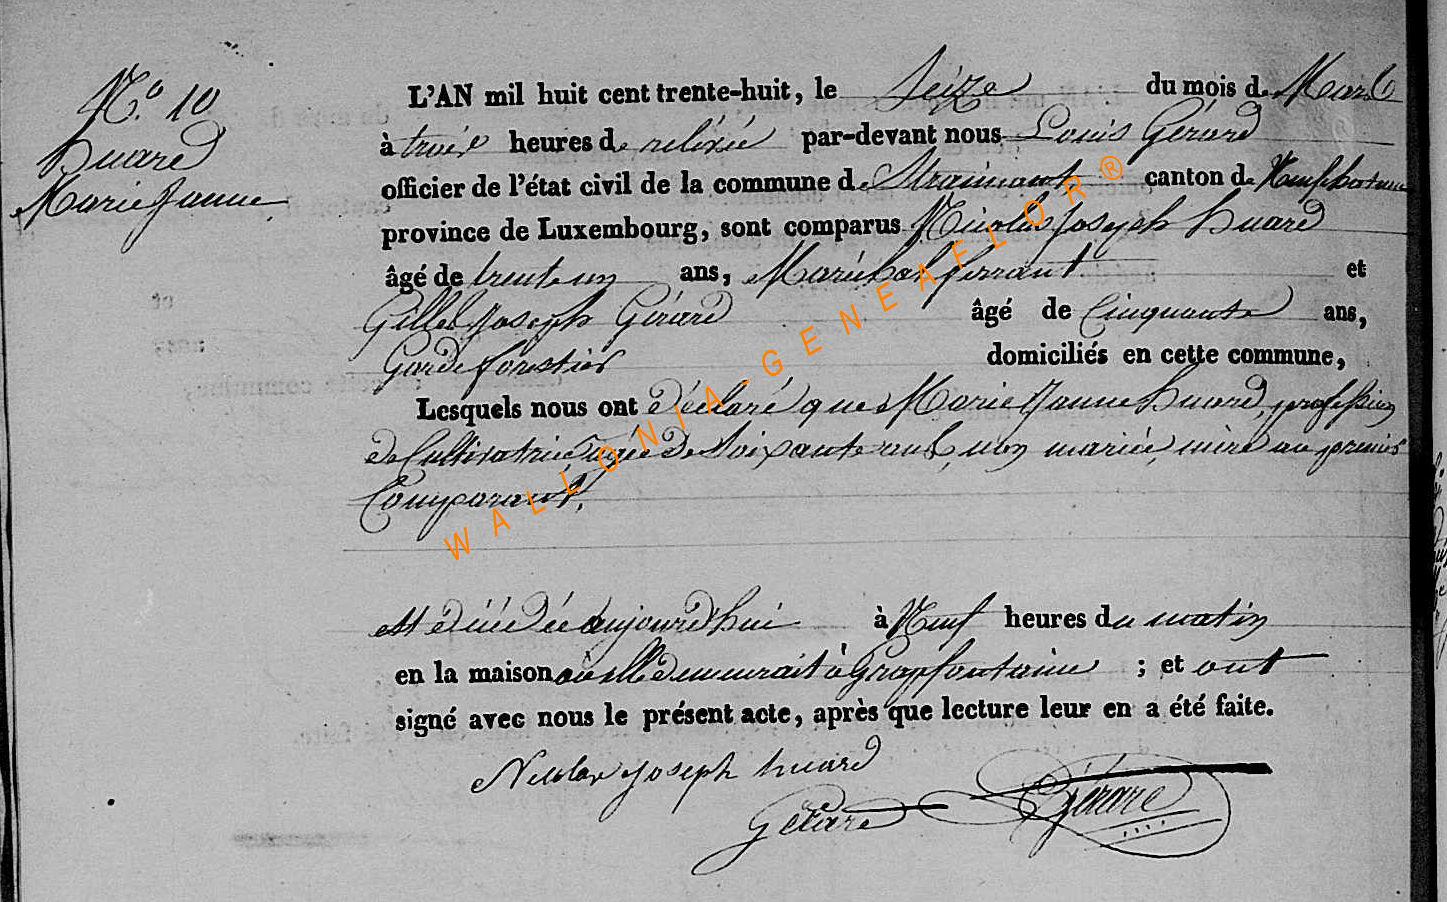 N.° 10
huard
Marie Janne.
L'AN mil huit cent trente-huit, le Seize du mois de Mars
à trois heures de relévée par-devant nous Louis Gérard
officier de l'état civil de la commune de Straimont canton de Neufchateau
province de Luxembourg, sont comparus Nicolas Joseph huard
âgé de trente un ans, Maréchal ferrant et
Gilles Joseph Gérard âgé de Cinquante ans,
Garde forestier domiciliés en cette commune,
Lesquels nous ont déclaré que Marie Janne huard, profession
de Cultivatrice agée de Soixante ans, non mariée, mère au premier
Comparant.
est décédée aujourd'hui à Neuf heures du matin
en la maison où elle demeurait à Grapfontaine ; et ont
signé avec nous le présent acte, après que lecture leur en a été faite.
Nicolas joseph huard
Gérard Gérard
WALLONIA-GENEAFLOR®